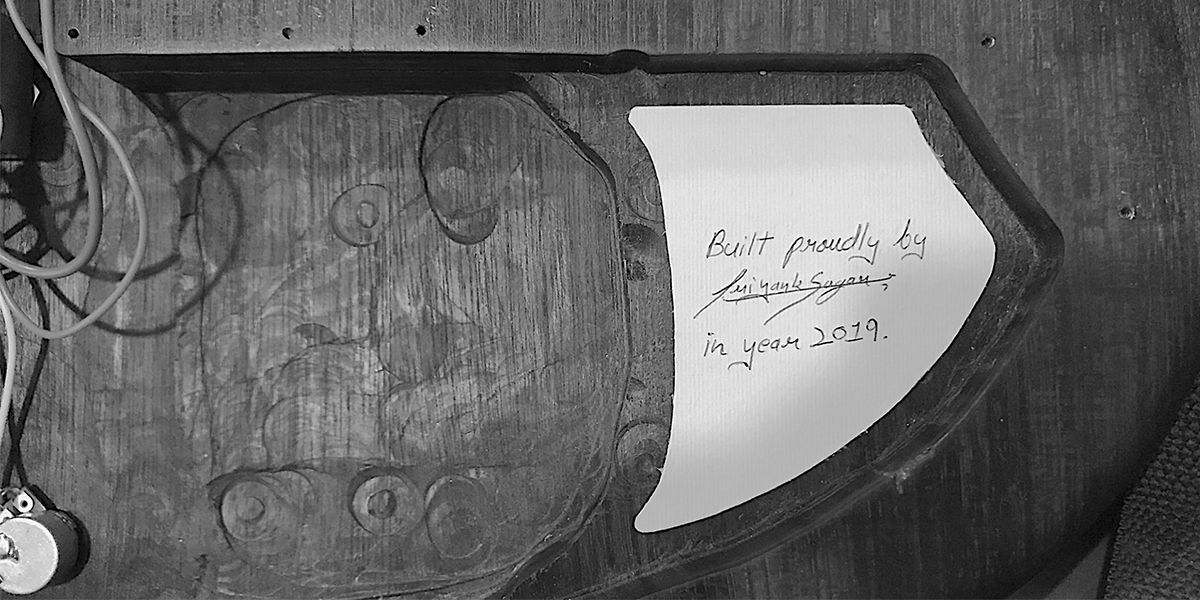 Built proudly by
Priyank Sagar
in year 2019.